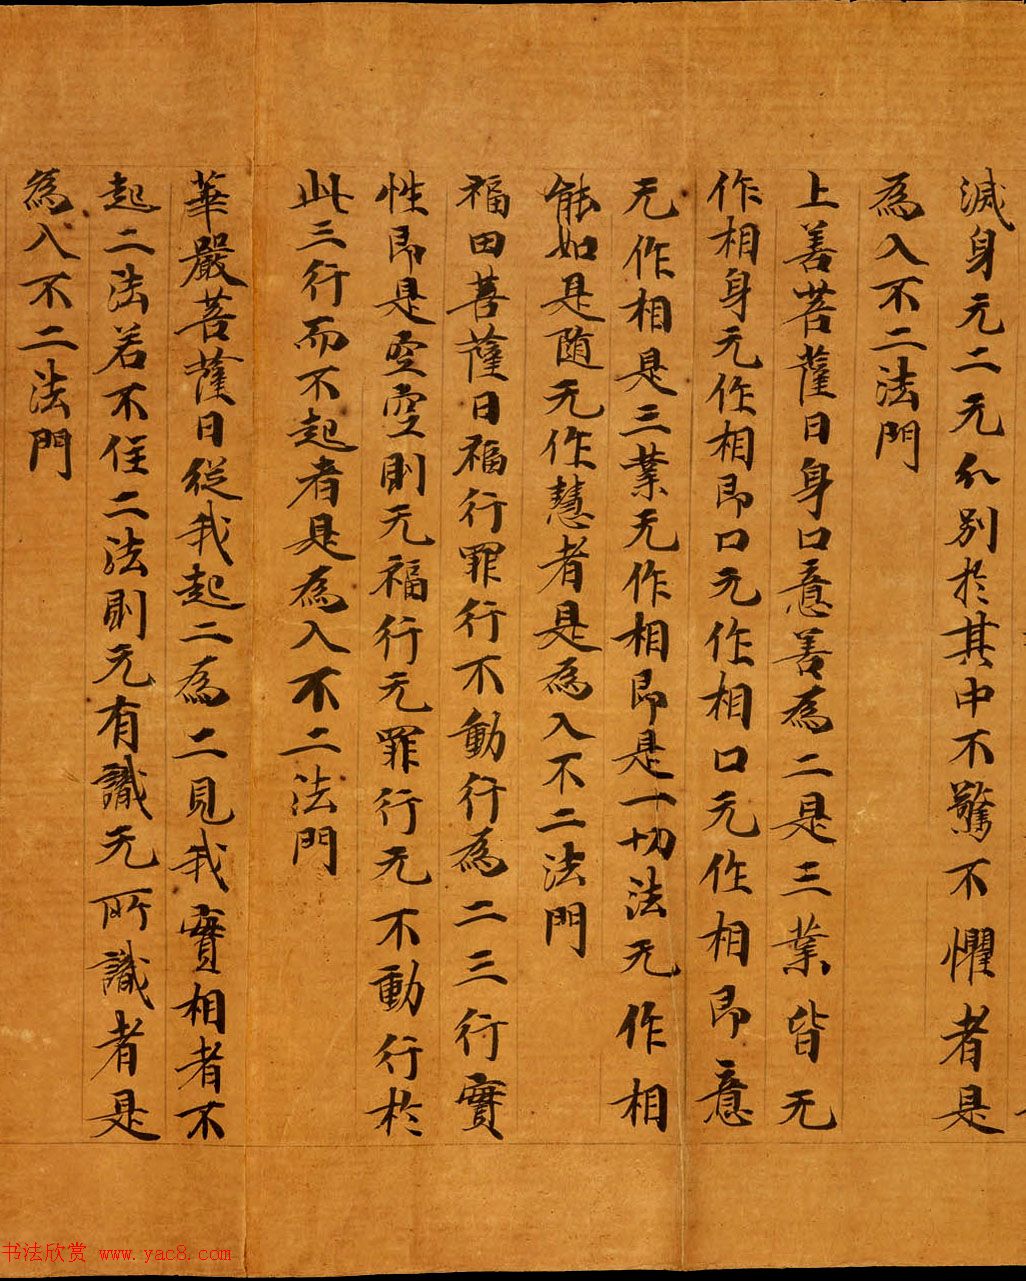 滅身无二无分別於其中不驚不懼者是
為入不二法門
上善菩薩曰身口意善為二是三業皆无
作相身无作相即口无作相口无作相即意
无作相是三業无作相即是一切法无作相
能如是随无作慧者是為入不二法門
福田菩薩曰福行罪行不動行為二三行實
性即是空空則无福行无罪行无不動行於
此三行而不起者是為入不二法門
華嚴菩薩曰從我起二為二見我實相者不
起二法若不住二法則无有識无所識者是
為入不二法門
书法欣赏 www.yac8.com